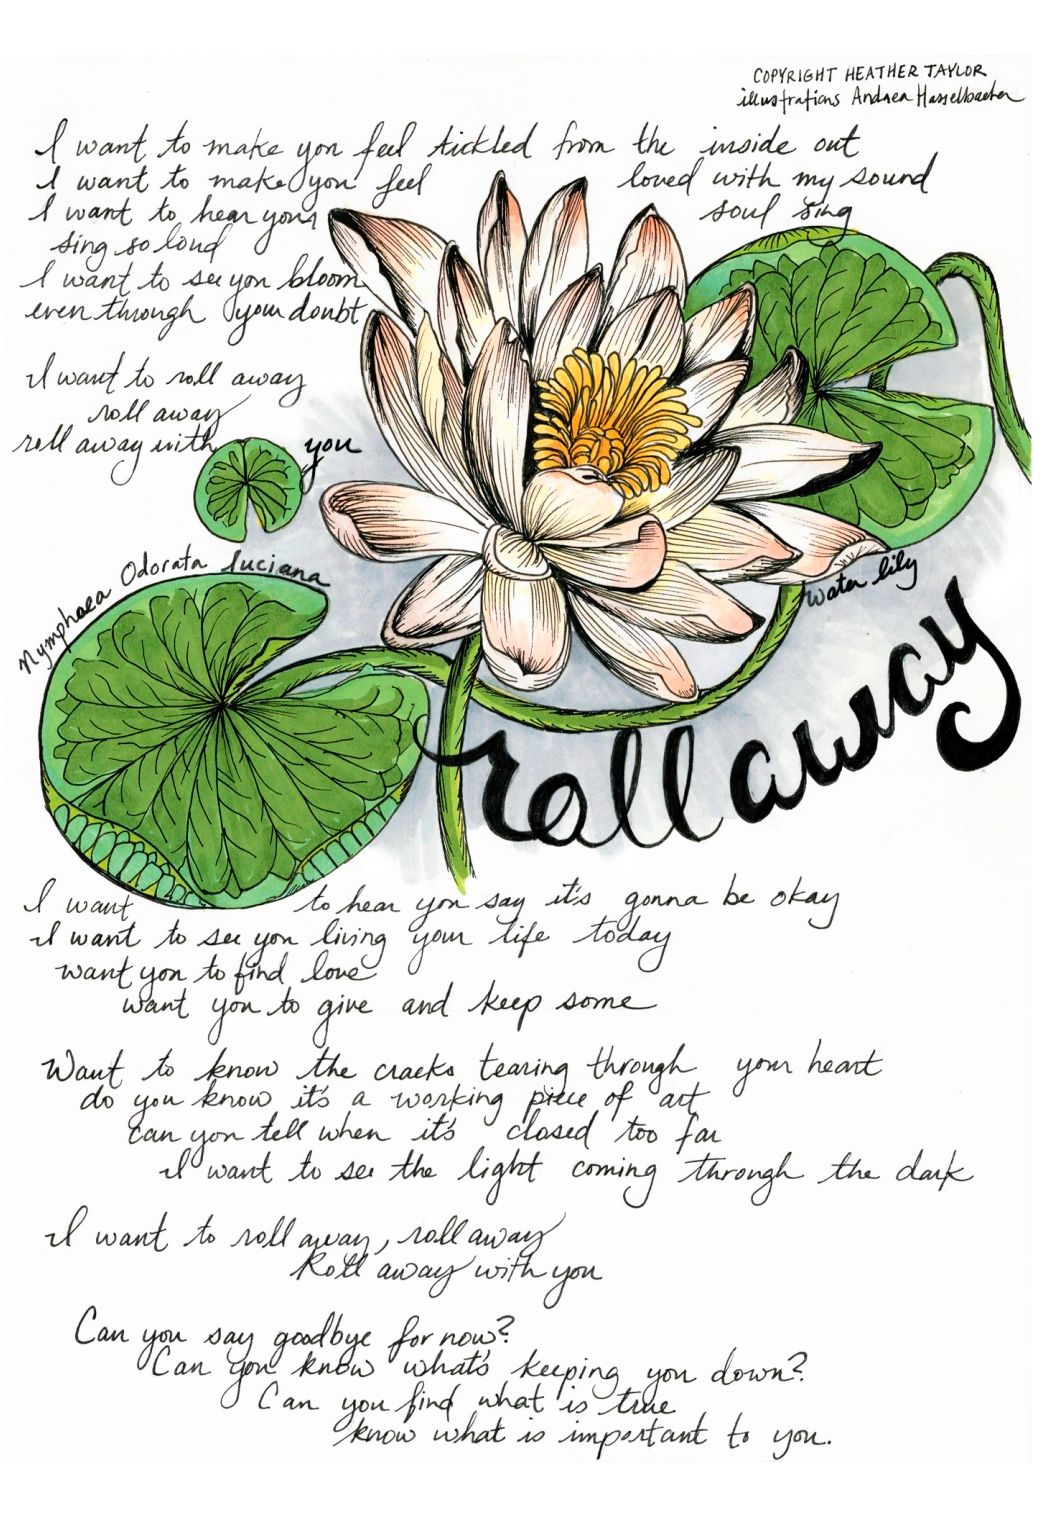 COPYRIGHT HEATHER TAYLOR
illustrations Andrea Hasselbacher
I want to make you feel tickled from the inside out
I want to make you feel loved with my sound
I want to hear your soul sing
sing so loud
I want to see you bloom
even through your doubt
I want to roll away
roll away
roll away with you
Nymphaea Odorata luciana
water lily
roll away
I want to hear you say it's gonna be okay
I want to see you living your life today
want you to find love
want you to give and keep some
Want to know the cracks tearing through your heart
do you know it's a working piece of art
can you tell when it's closed too far
I want to see the light coming through the dark
I want to roll away, roll away
Roll away with you
Can you say goodbye for now?
Can you know what's keeping you down?
Can you find what is true
know what is important to you.